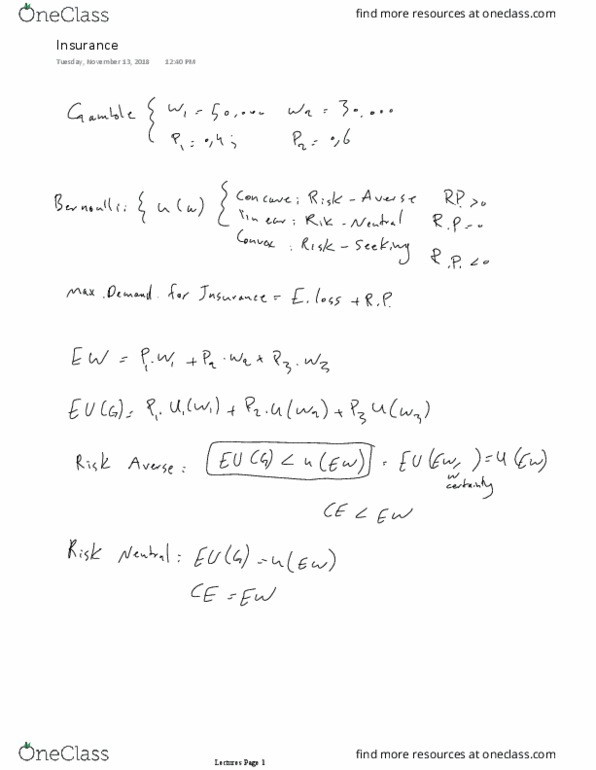 OneClass
find more resources at oneclass.com
Insurance
Tuesday, November 13, 2018 12:40 PM
Gamble { W₁ = 50,000 W₂ = 30,000
P₁ = 0,4 ; P₂ = 0,6
Bernoulli: { u(w) { Concave: Risk-Averse R.P. >0
Linear: Rik-Neutral R.P. = 0
Convex: Risk-Seeking R.P. <0
Max. Demand for Insurance = E. loss + R.P.
EW = P₁·W₁ + P₂·W₂ + P₃·W₃
EU(G) = P₁·U₁(W₁) + P₂·U(W₂) + P₃ U(W₃)
Risk Averse: EU(G) < u(EW) = EU(EW, w certainty) = U(EW)
CE < EW
Risk Neutral: EU(G) = u(EW)
CE = EW
OneClass
Lectures Page 1
find more resources at oneclass.com